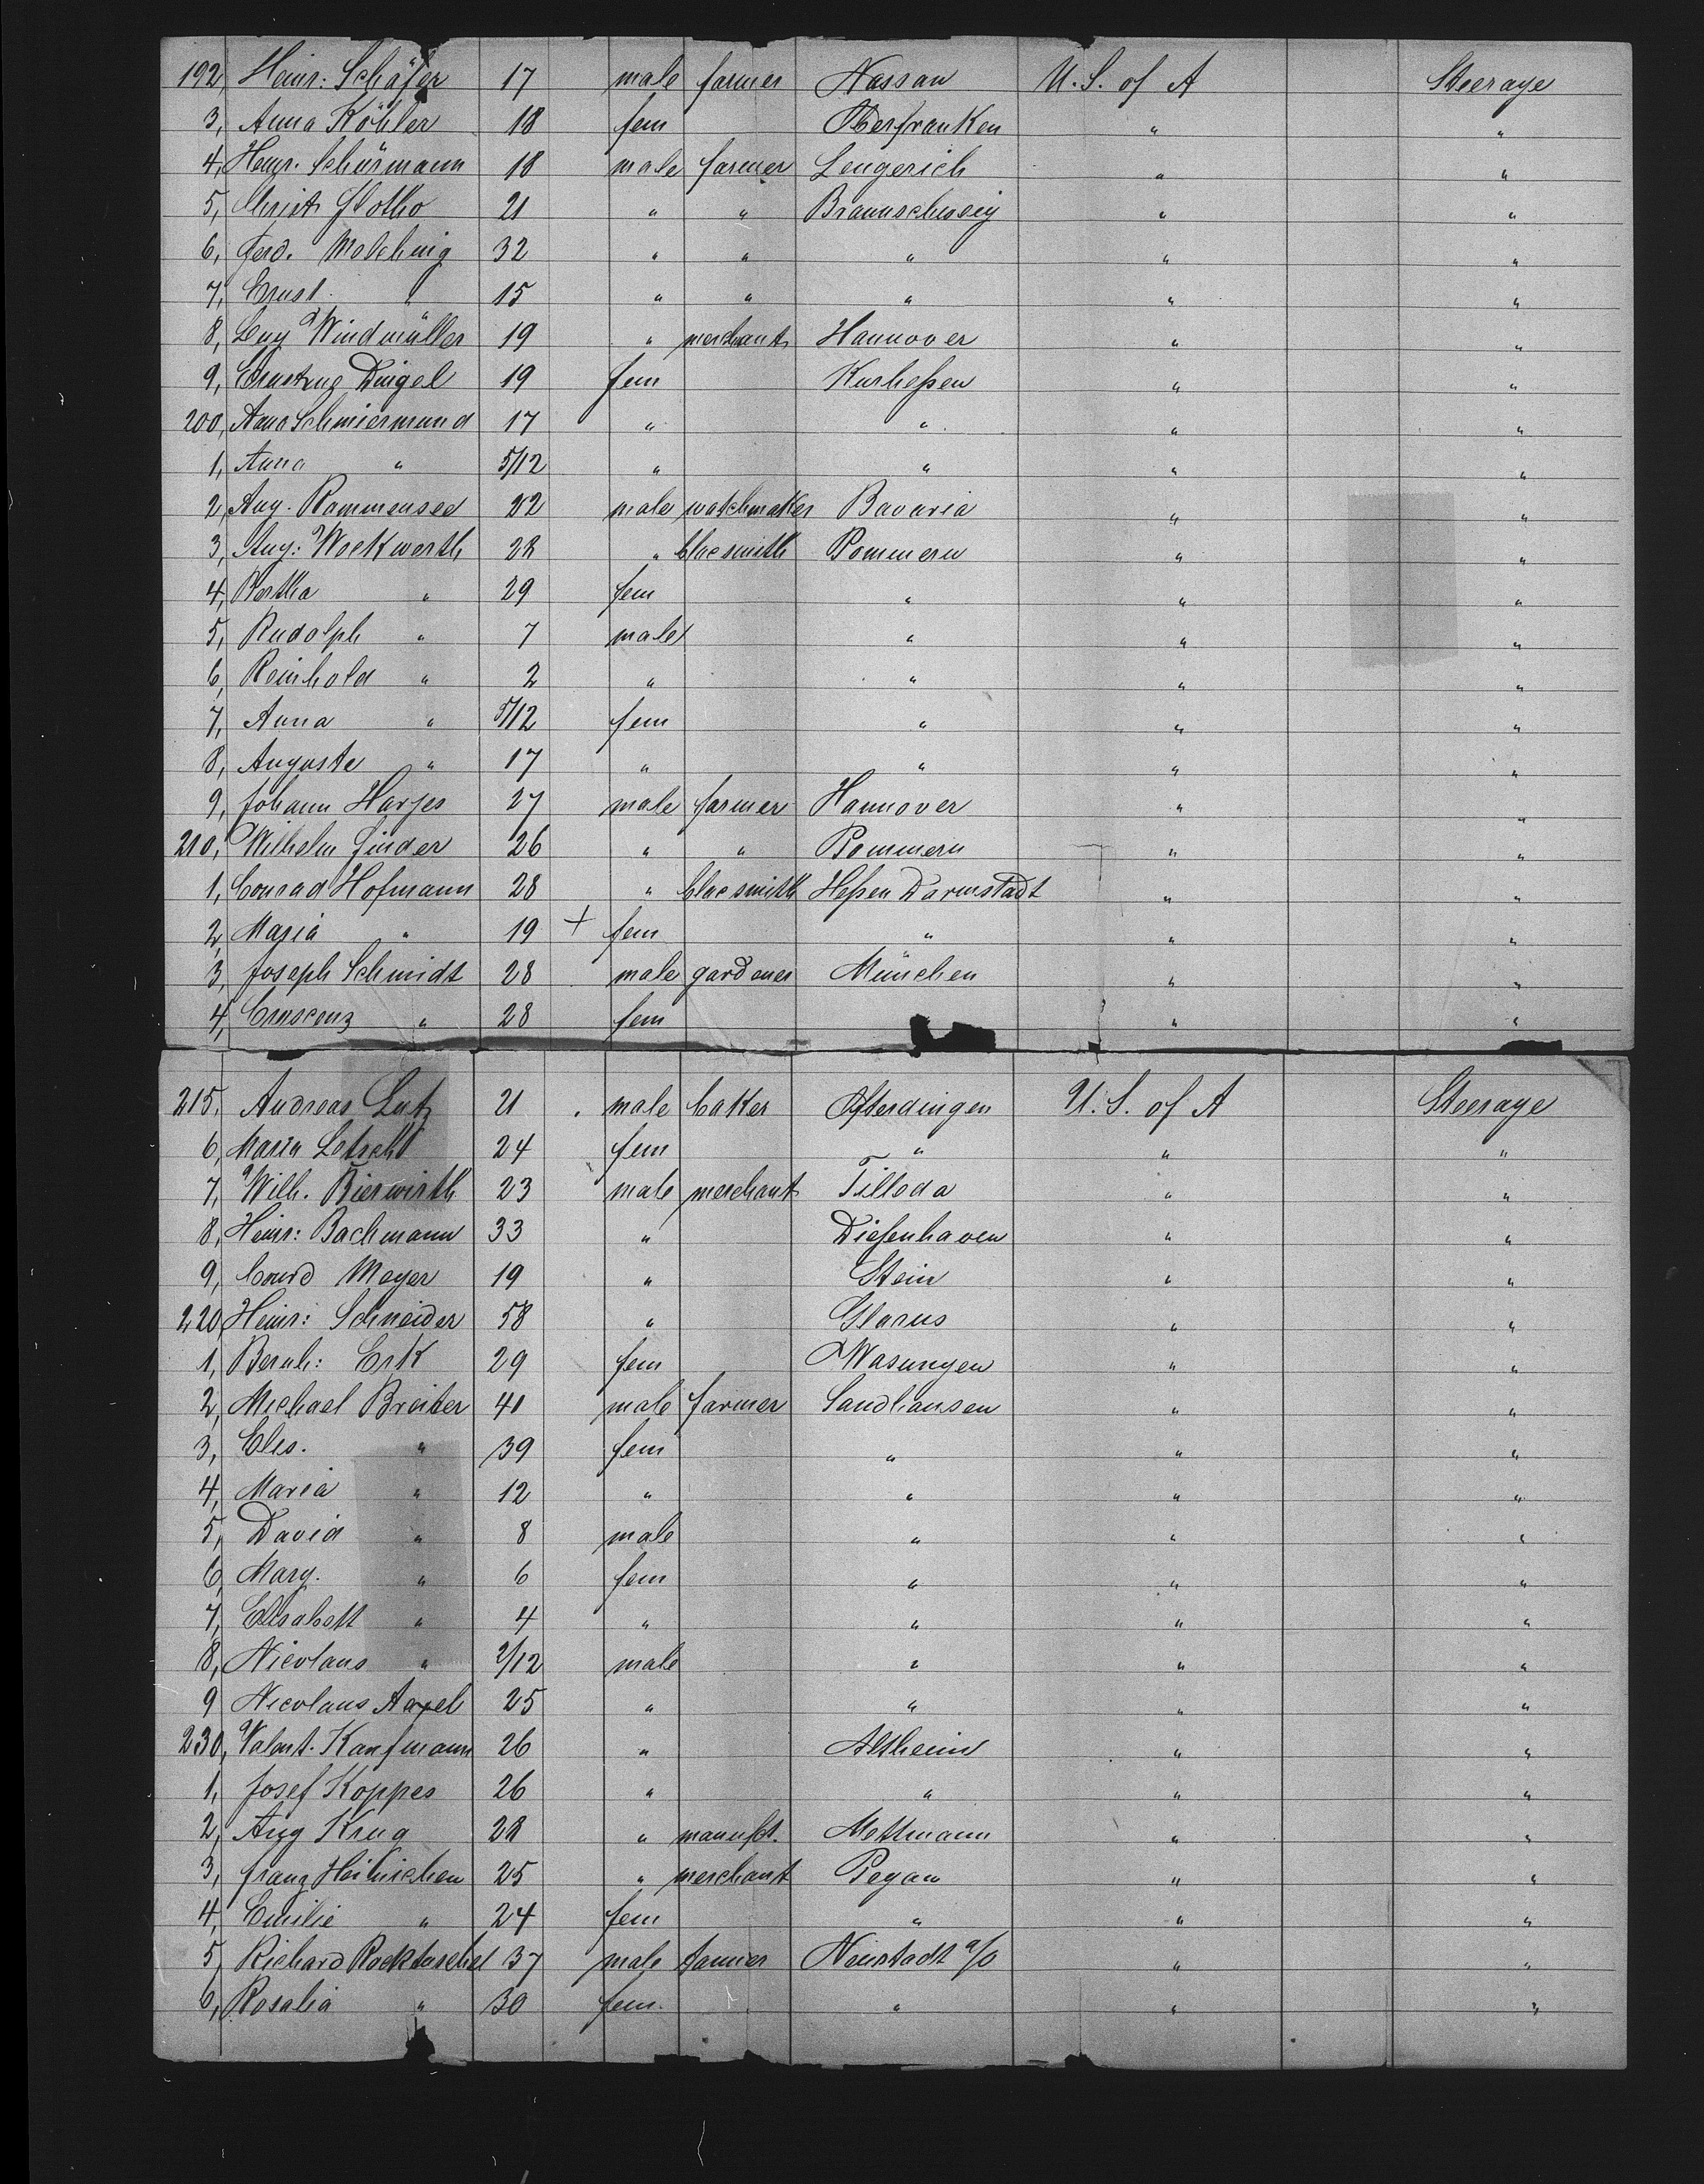 192, Heinr: Schäfer 17 male farmer Nassau U. S. of A Steerage
3, Anna Köhler 18 fem Oberfranken " "
4, Heinr. Schürmann 18 male farmer Lengerich " "
5, Christ Flotho 21 " " Braunschweig " "
6, Ferd. 32 " " " " "
7, Ernst " 15 " " " " "
8, Levy Windmüller 19 " merchant Hannover " "
9, Dingel 19 fem Kurheßen " "
200, Anna Schmiermund 17 " " " "
1, Anna " 5/12 " " " "
2, Aug. Rammensee 22 male watchmaker Bavaria " "
3, Aug: Wockwerth 28 " blacsmith Pommern " "
4, Bertha " 29 fem " " "
5, Rudolph " 7 male " " "
6, Reinhold " 2 " " " "
7, Anna " 5/12 fem " " "
8, Auguste " 17 " " " "
9, Johann Harjes 27 male farmer Hannover " "
210, Wilhelm Finder 26 " " Pommern " "
1, Conrad Hofmann 28 " blacsmith Heßen Darmstadt " "
2, Maria " 19 + fem " " "
3, Joseph Schmidt 28 male gardener München " "
4, Crescenz " 28 fem " "
215, Andreas Lutz 21 male baker Ofterdingen U. S. of A Steerage
6, Maria 24 fem " " "
7, Wilh. Bierwirth 23 male merchant Tilleda " "
8, Heinr: Bachmann 33 " Dießenhaven " "
9, Conrd Meyer 19 " Stein " "
220, Heinr: Schneider 58 " Glarus " "
1, Bernh: Erk 29 fem Wasungen " "
2, Michael Breiter 41 male farmer Sandhausen " "
3, Elis. " 39 fem " " "
4, Maria " 12 " " " "
5, David " 8 male " " "
6, Marg. " 6 fem " " "
7, Elisabett " 4 " " " "
8, Nicolaus " 2/12 male " " "
9 Nicolaus Appel 25 " " " "
230, Valent. Kaufmann 26 " Altheim " "
1, Josef Koppes 26 " " " "
2, Aug Krug 28 " manufct. Mettmann " "
3, Franz Heinichen 25 " merchant Pegau " "
4, Emilie " 24 fem " " "
5, Richard Rocktaschel 37 male tanner Neustadt a/O " "
6, Rosalia " 30 fem. " " "